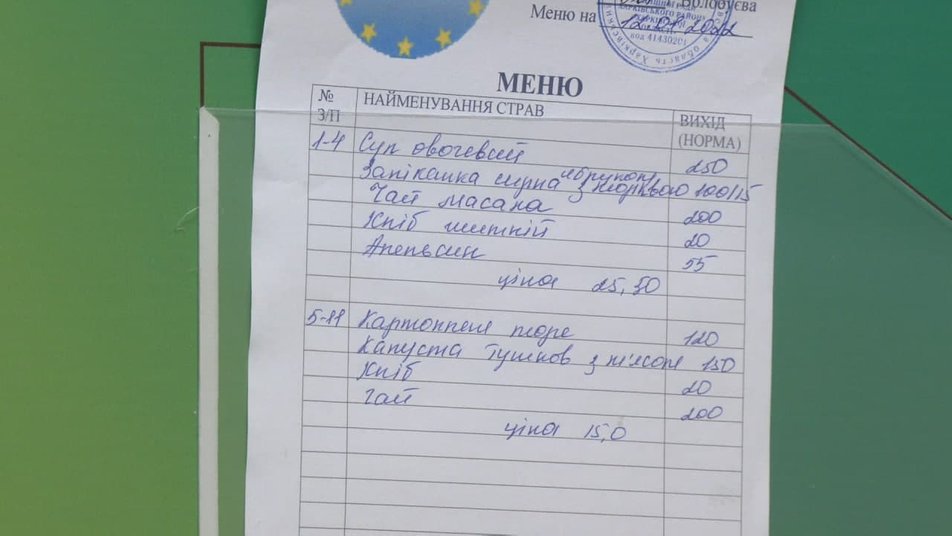 Волобуєва
Меню на 12.01.2022
код 41430201
МЕНЮ
№ З/П НАЙМЕНУВАННЯ СТРАВ ВИХІД (НОРМА)
1-4 Суп овочевий 250
Запіканка сирна з морквою 100/15
Чай масала 200
Хліб житній 20
Апельсин 55
ціна 25,50
5-11 Картопляне пюре 120
Капуста тушков з м'ясом 150
Хліб 20
Чай 200
ціна 15,0